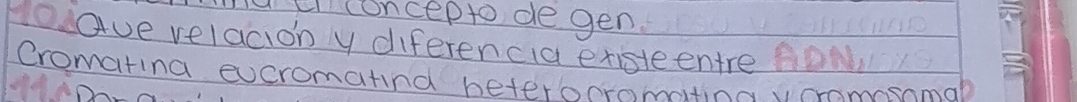 concepto de gen.
10. Que relación y diferencia existe entre ADN,
Cromatina eucromatina heterocromatina y cromosoma?
11.